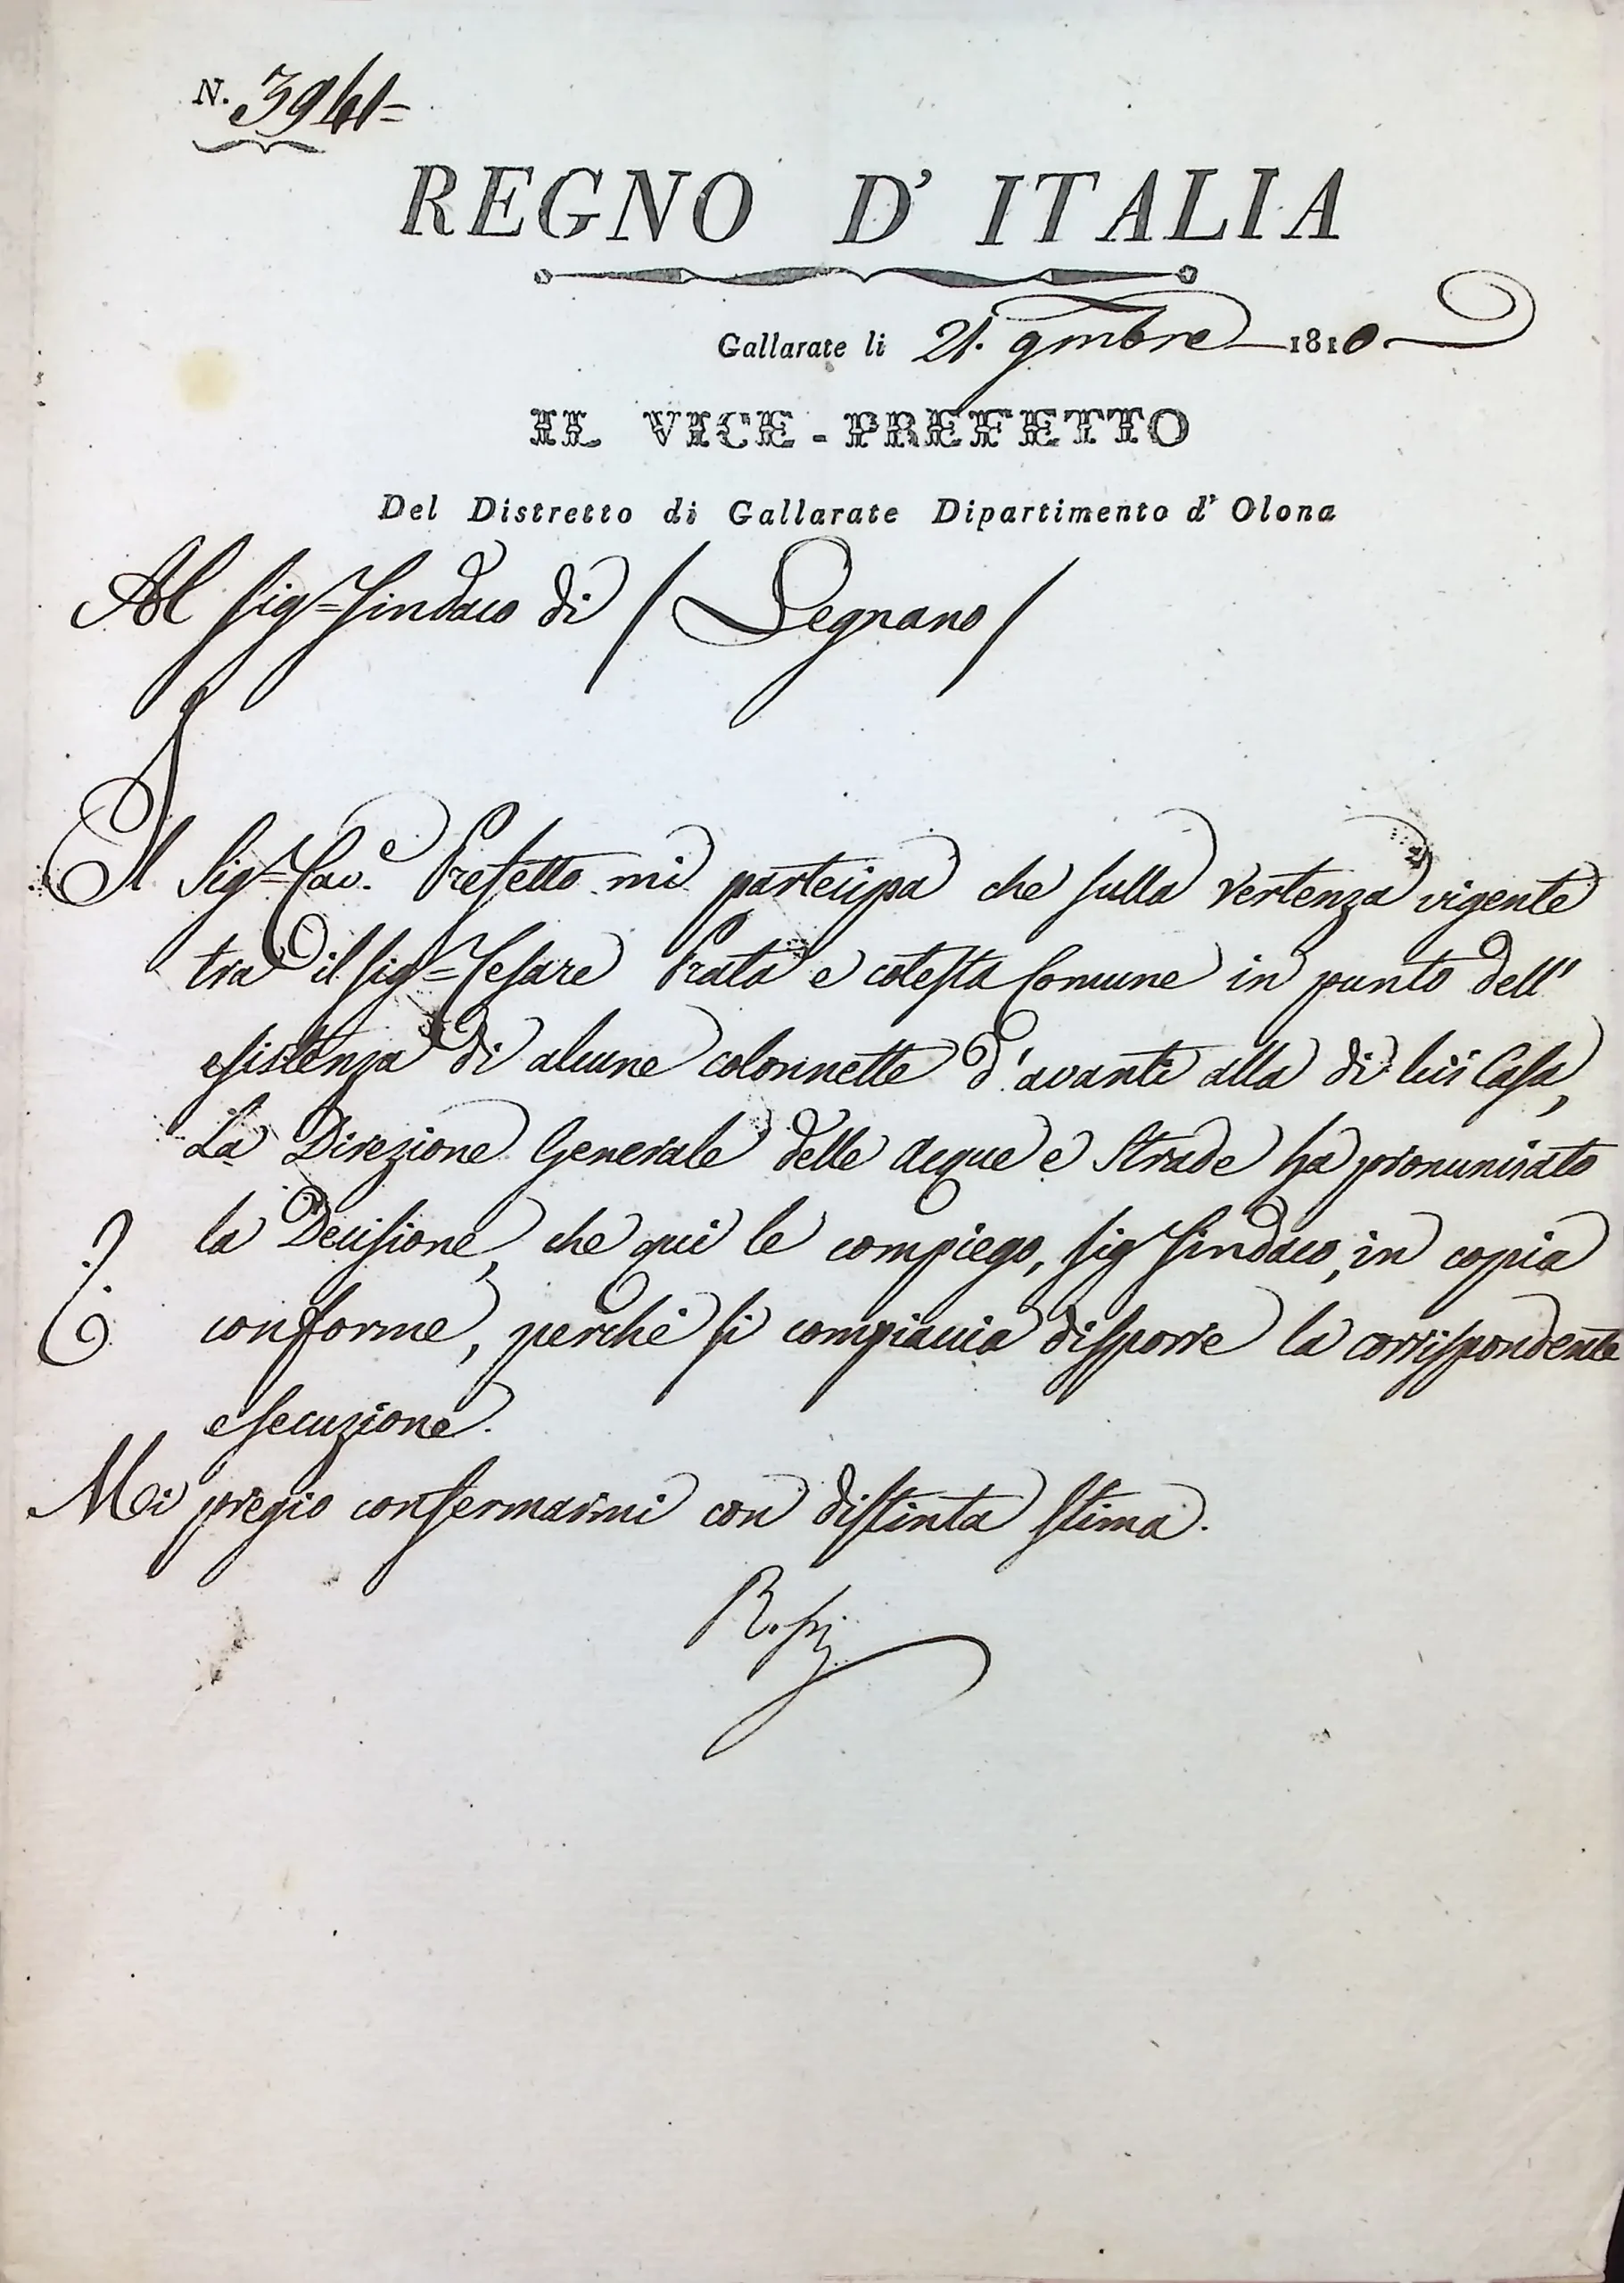 N. 3941=
REGNO D' ITALIA
Gallarate li 21. 9mbre 1810
IL VICE-PREFETTO
Del Distretto di Gallarate Dipartimento d' Olona
Al Sig= Sindaco di / Legnano /
Il Sig= Cav.e Prefetto mi partecipa che sulla vertenza vigente
tra il Sig= Cesare Prata e cotesta Comune in punto dell'
esistenza di alcune colonnette d'avanti alla di lui Casa,
La Direzione Generale delle Acque e Strade ha pronunciato
la Decisione, che qui le compiego, Sig Sindaco, in copia
conforme, perchè si compiaccia disporre la corrispondente
esecuzione.
Mi pregio confermarmi con distinta stima.